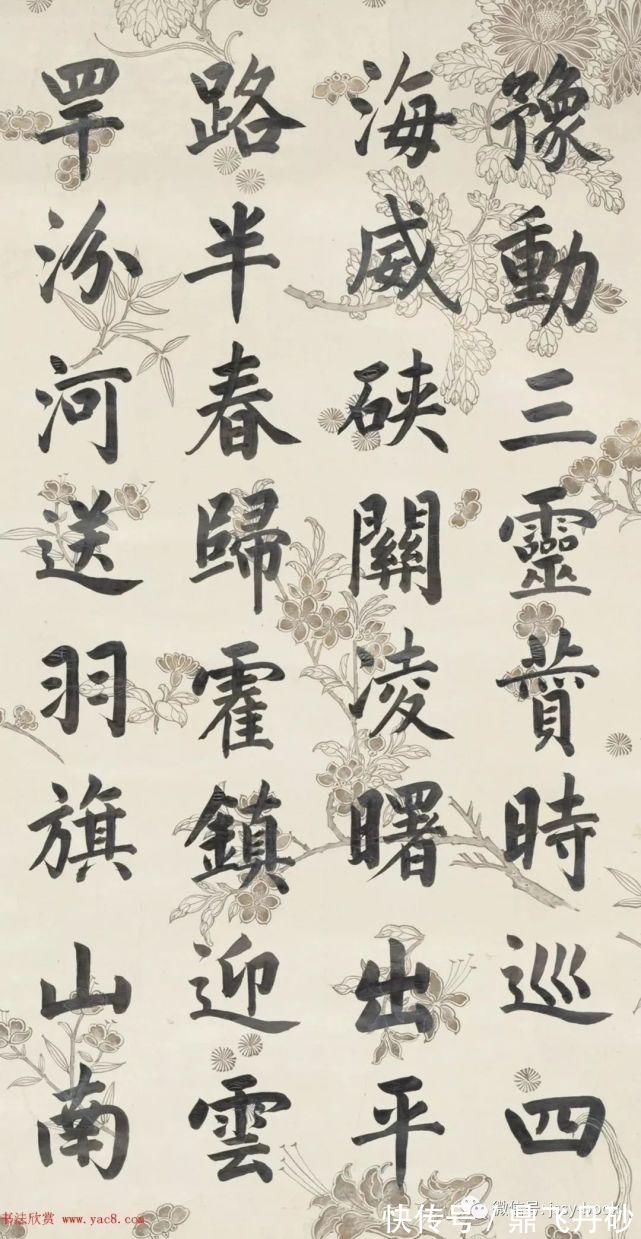 豫動三靈蕡時巡四
海威硤關凌曙出平
路半春歸霍鎮迎雲
罕汾河送羽旗山南
书法欣赏 www.yac8.com
微信号:
快传号 / 鼎飞丹砂